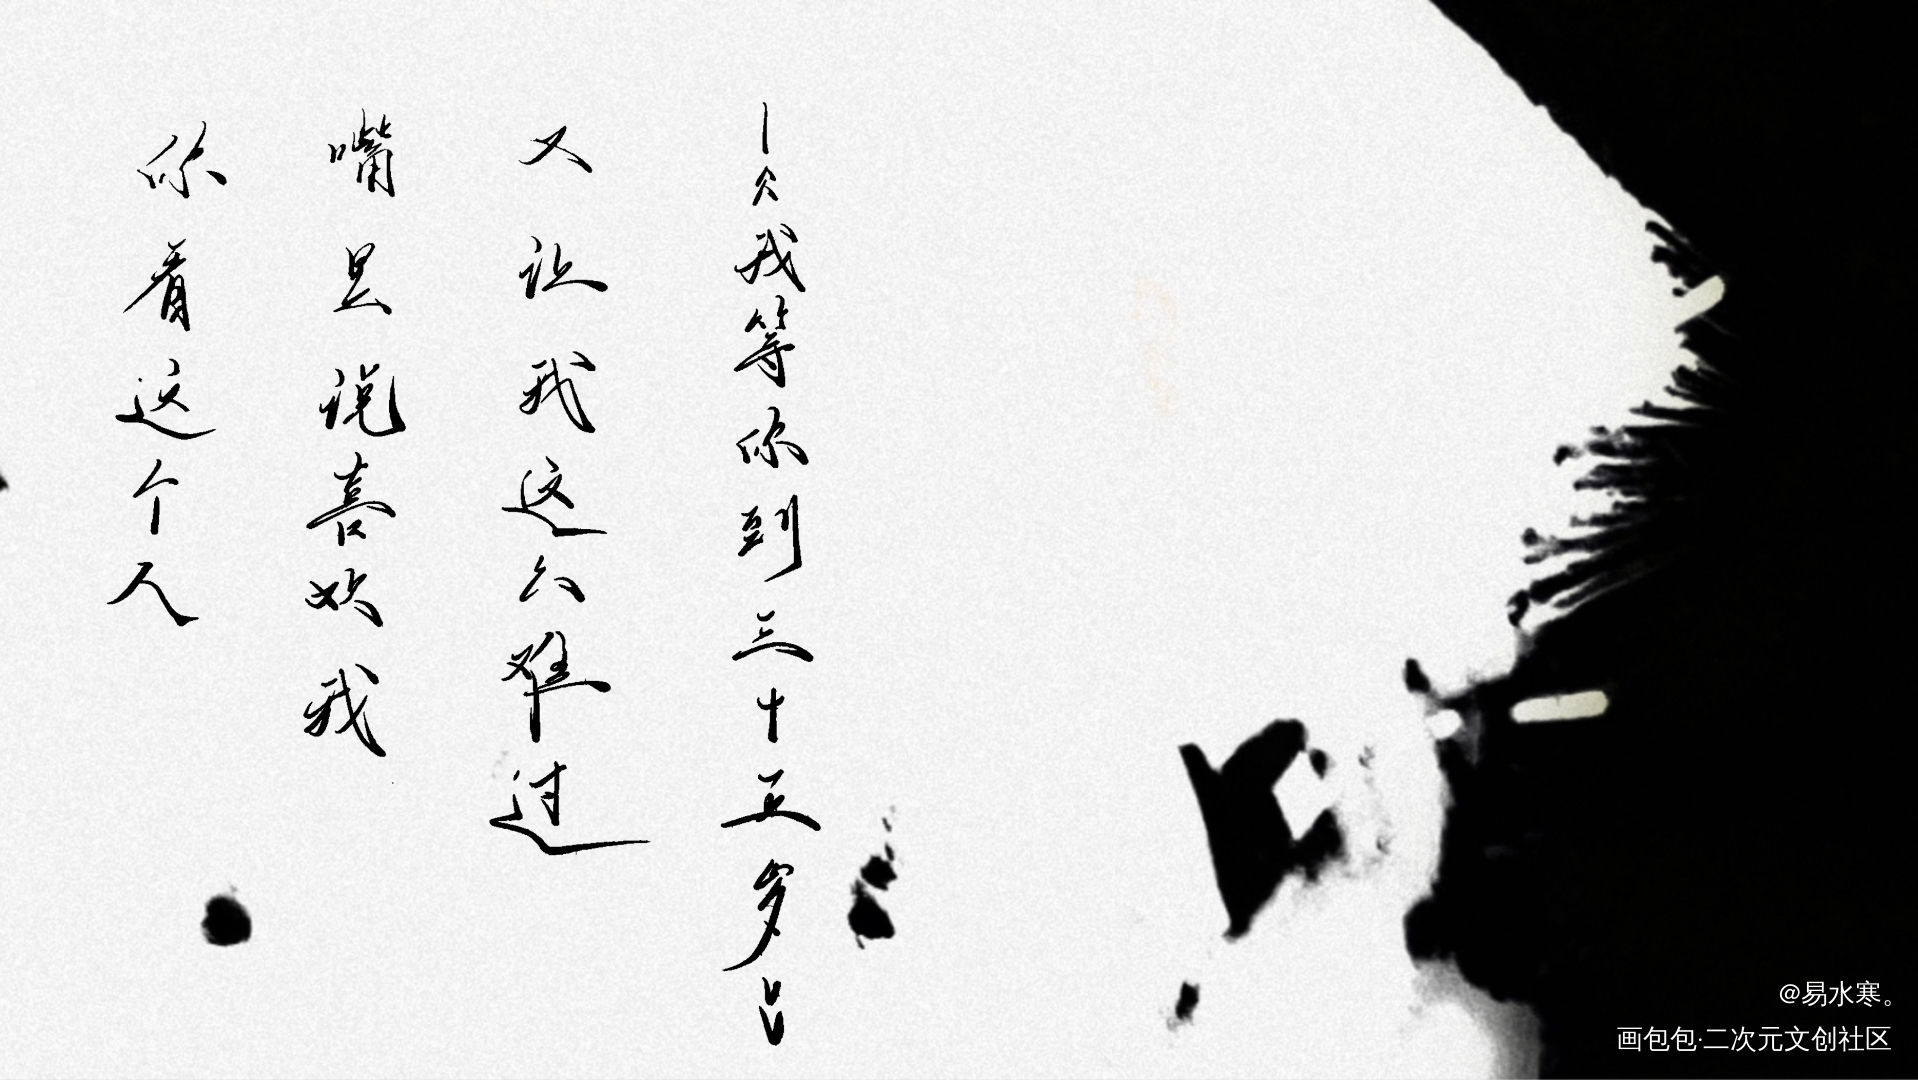 你看这个人
嘴里说喜欢我
又让我这么难过
—《我等你到三十五岁》
@易水寒。
画包包·二次元文创社区